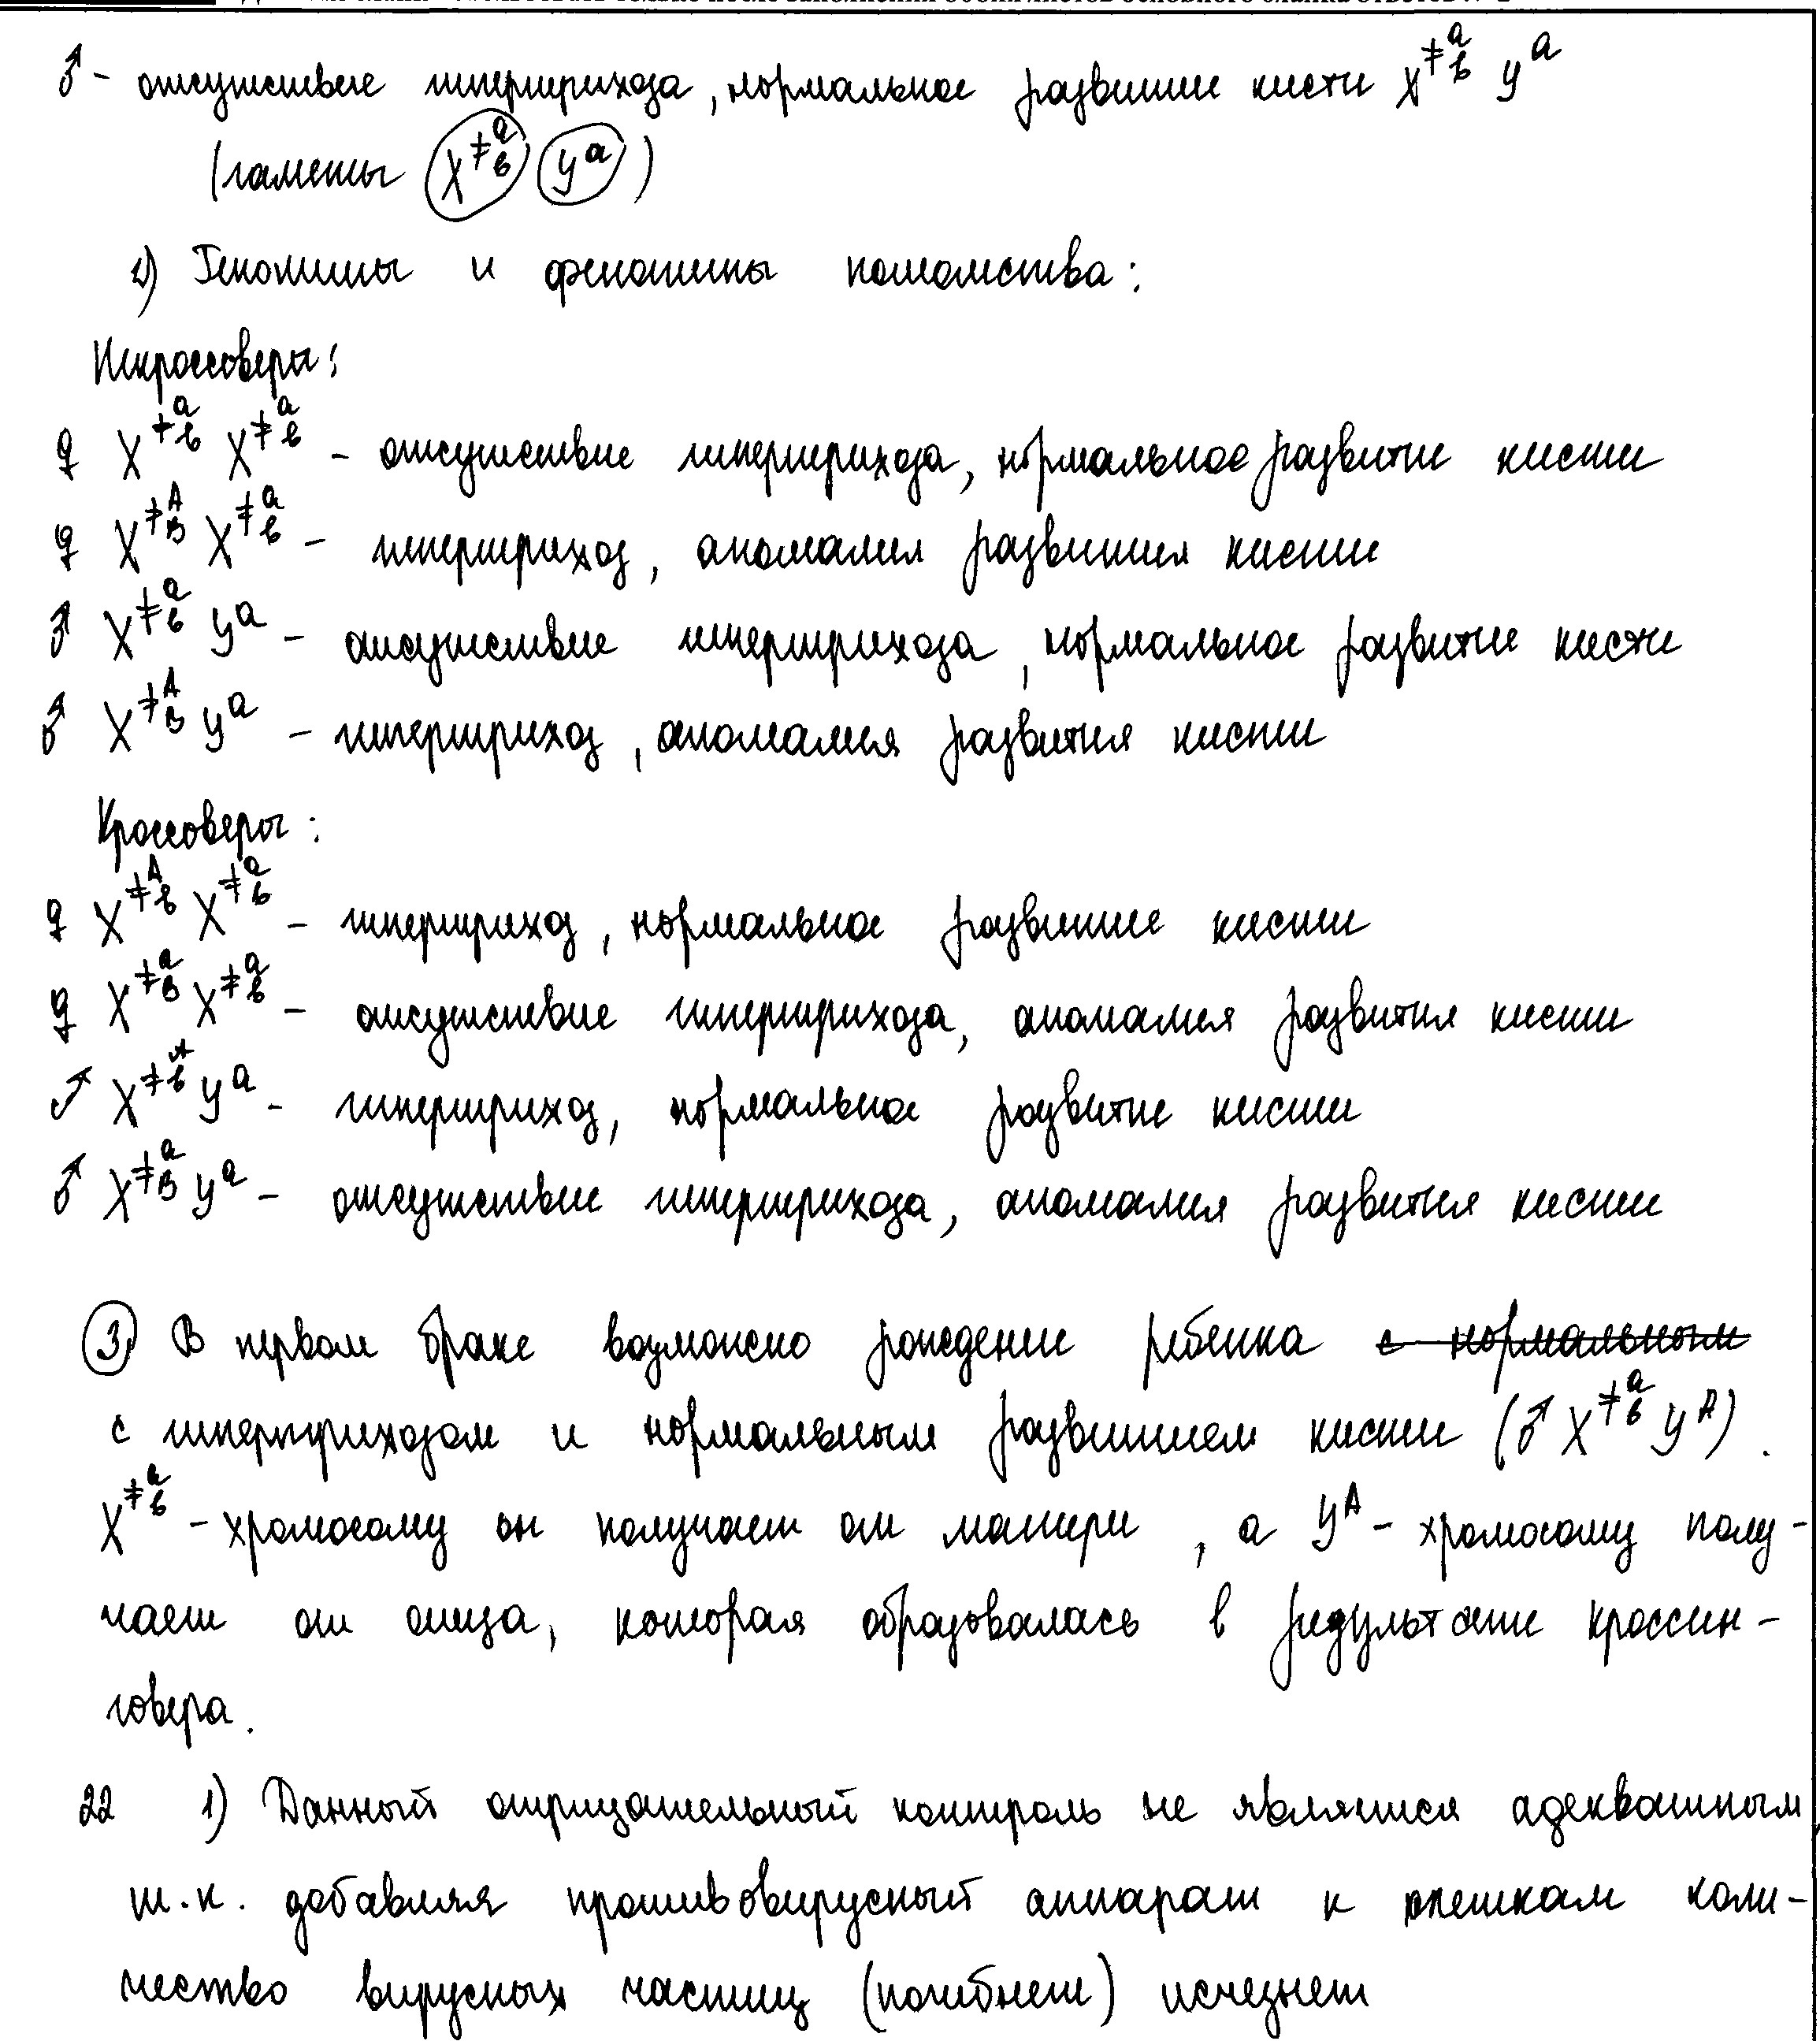 ♂ - отсутствие гипертрихоза, нормальное развитие кисти X^(≠ a b) y^a
(гаметы X^(≠ a b) y^a)
2) Генотипы и фенотипы потомства:
Некроссоверы:
♀ X^(≠ a b) X^(≠ a b) - отсутствие гипертрихоза, нормальное развитие кисти
♀ X^(≠ A B) X^(≠ a b) - гипертрихоз, аномалия развития кисти
♂ X^(≠ a b) y^a - отсутствие гипертрихоза, нормальное развитие кисти
♂ X^(≠ A B) y^a - гипертрихоз, аномалия развития кисти
Кроссоверы:
♀ X^(≠ A b) X^(≠ a b) - гипертрихоз, нормальное развитие кисти
♀ X^(≠ a B) X^(≠ a b) - отсутствие гипертрихоза, аномалия развития кисти
♂ X^(≠ A b) y^a - гипертрихоз, нормальное развитие кисти
♂ X^(≠ a B) y^a - отсутствие гипертрихоза, аномалия развития кисти
3) В первом браке возможно рождение ребенка с нормальным
с гипертрихозом и нормальным развитием кисти (♂ X^(≠ a b) y^A).
X^(≠ a b) - хромосому он получает от матери, а y^A - хромосому полу-
чает от отца, которая образовалась в результате кроссин-
говера.
22 1) Данный отрицательный контроль не является адекватным
т.к. добавляя противовирусный аппарат к клеткам коли-
чество вирусных частиц (погибнет) исчезнет